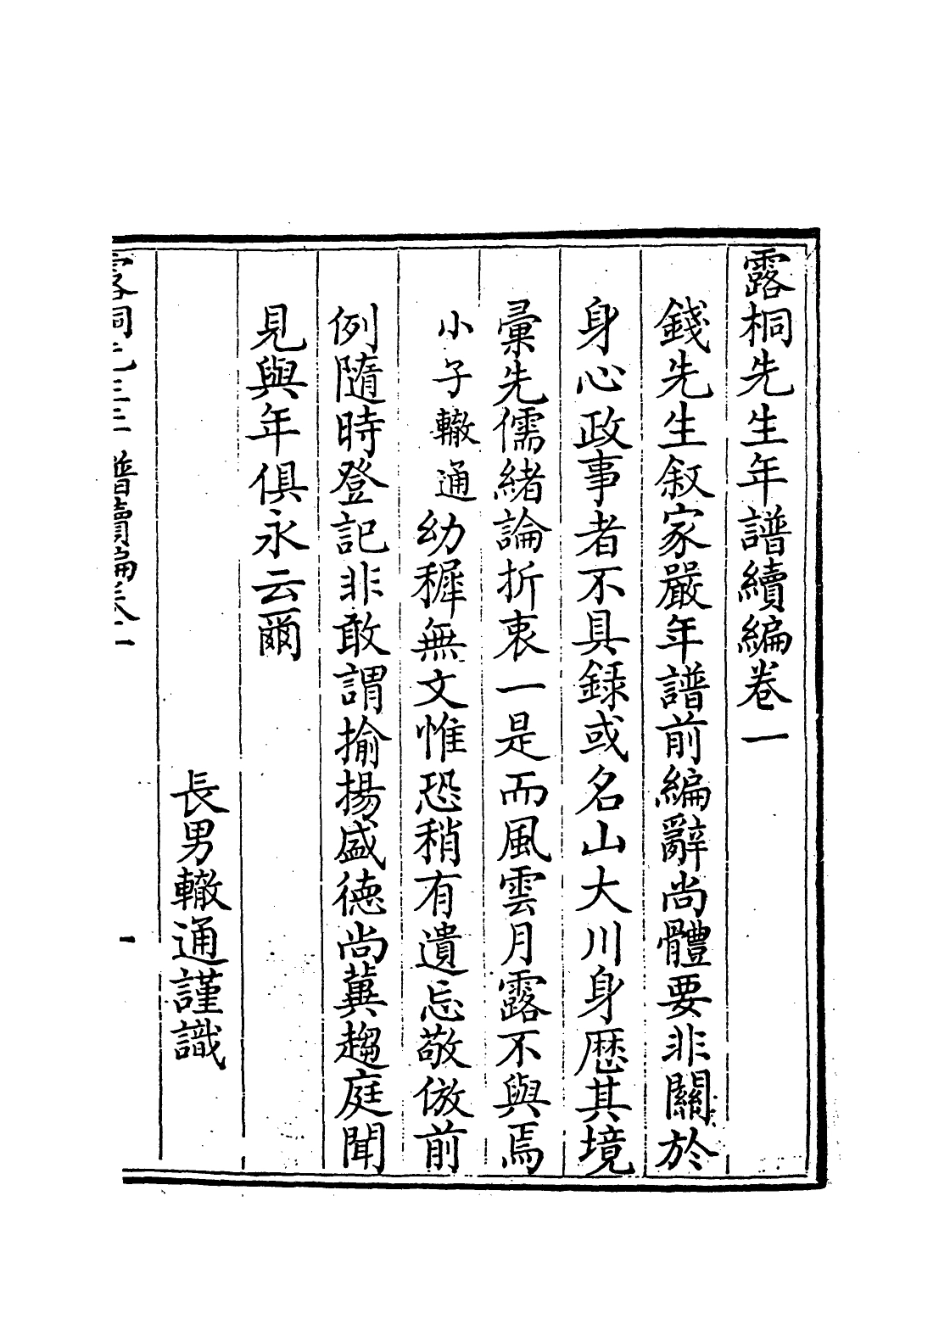 露桐先生年譜續編卷一
錢先生叙家嚴年譜前編辭尚體要非關於
身心政事者不具録或名山大川身歴其境
彚先儒緒論折衷一是而風雲月露不與焉
小子轍通幼穉無文惟恐稍有遺忘敬倣前
例隨時登記非敢謂揄揚盛德尚冀趨庭聞
見與年俱永云爾
長男轍通謹識
譜續編卷一
一